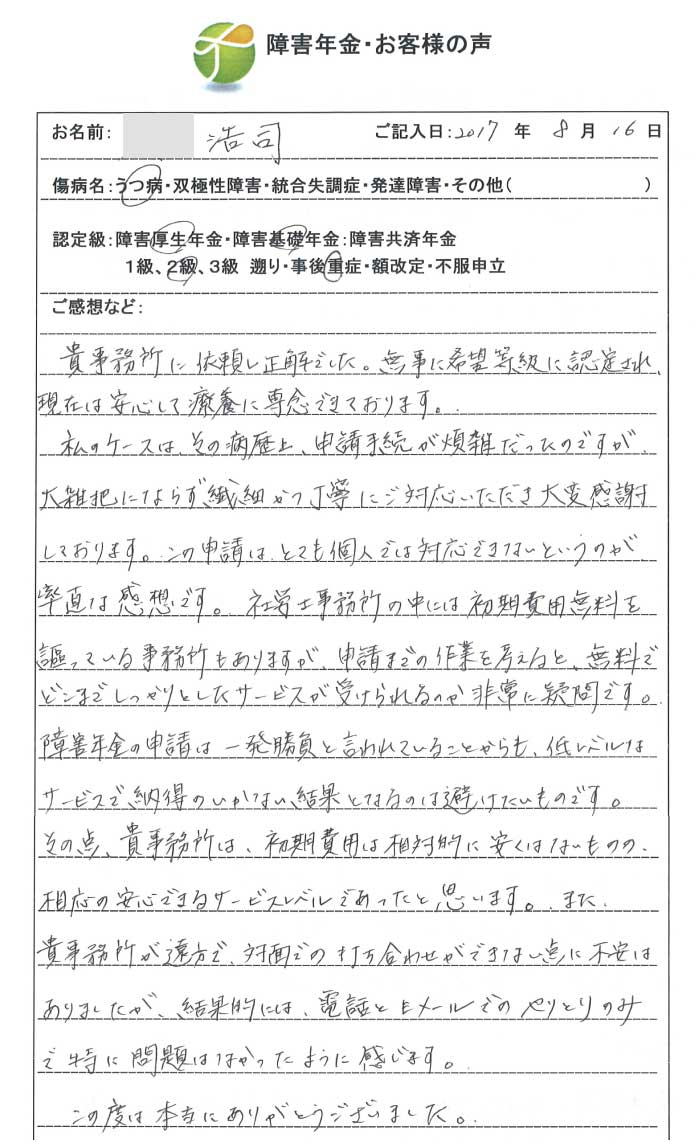 障害年金・お客様の声
お名前: 浩司 ご記入日:2017 年 8 月 16 日
傷病名:うつ病・双極性障害・統合失調症・発達障害・その他( )
認定級:障害厚生年金・障害基礎年金:障害共済年金
1級、2級、3級 遡り・事後重症・額改定・不服申立
ご感想など:
貴事務所に依頼し正解でした。無事に希望等級に認定され、
現在は安心して療養に専念できております。
私のケースは、その病歴上、申請手続が煩雑だったのですが、
大雑把にならず繊細かつ丁寧にご対応いただき大変感謝
しております。この申請は、とても個人では対応できないというのが、
率直な感想です。社労士事務所の中には初期費用無料を
謳っている事務所もありますが、申請までの作業を考えると、無料で
どこまでしっかりとしたサービスが受けられるのか非常に疑問です。
障害年金の申請は一発勝負と言われていることからも、低レベルな
サービスで、納得のいかない結果となるのは避けたいものです。
その点、貴事務所は、初期費用は相対的に安くはないものの、
相応の安心できるサービスレベルであったと思います。また、
貴事務所が遠方で、対面での打ち合わせができない点に不安は
ありましたが、結果的には、電話とEメールでのやりとりのみ
で特に問題はなかったように感じます。
この度は本当にありがとうございました。